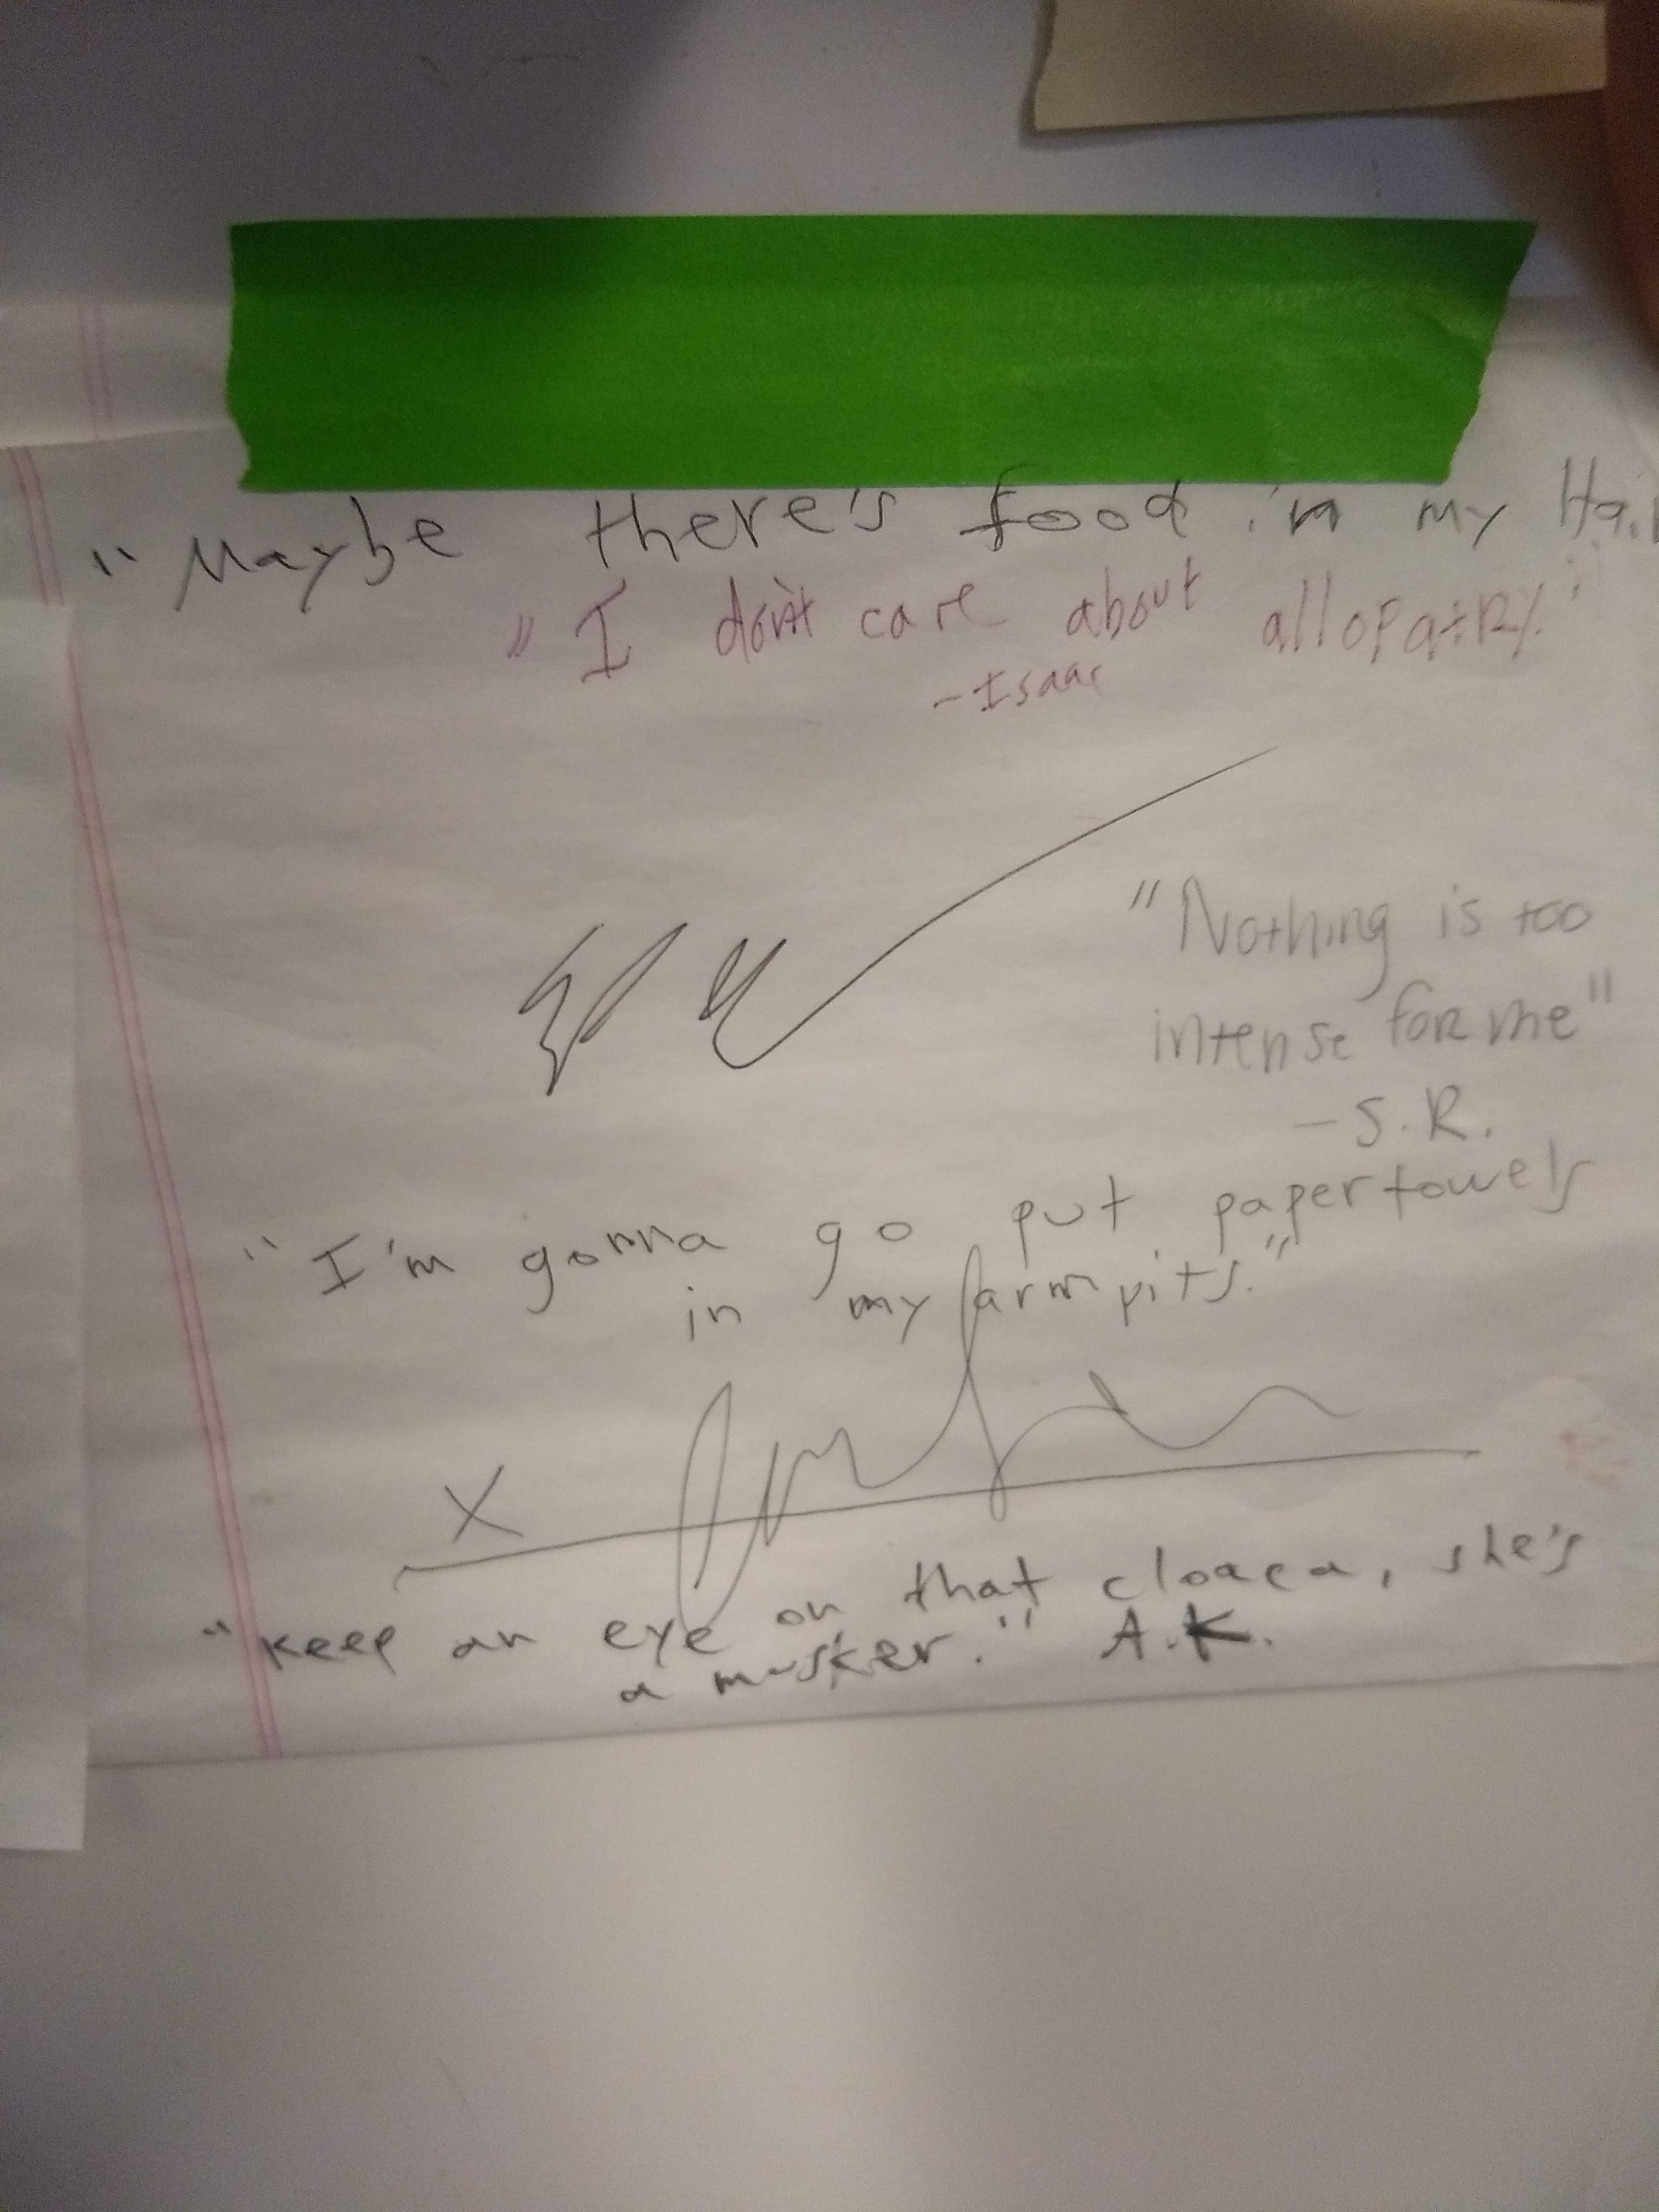 "Maybe there's food in my Hair
"I don't care about allopatry."
-Isaac
"Nothing is too
intense for me"
-S.R.
"I'm gonna go put papertowels
in my armpits."
X
"keep an eye on that cloaca, she's
a musker." A.K.